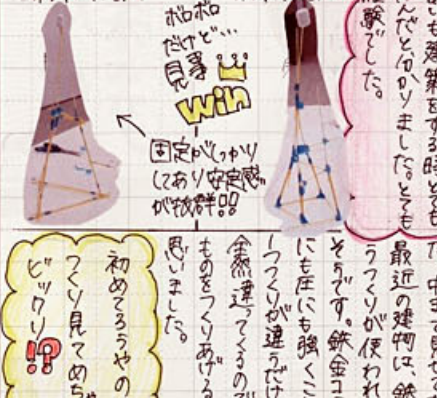 ボロボロ
だけど…
見事
win
固定がしっかり
してあり安定感
が抜群!!
も建築をする時とても
んだと分かりました。とても
験でした。
最近の建物は、鉄
うつくりが使われ
そうです。鉄金コ
にも圧にも強くこ
つくりが違うだけ
全然違ってくるので
ものをつくりあげる
思いました。
初めてろうやの
つくり見てめちゃ
ビックリ!?